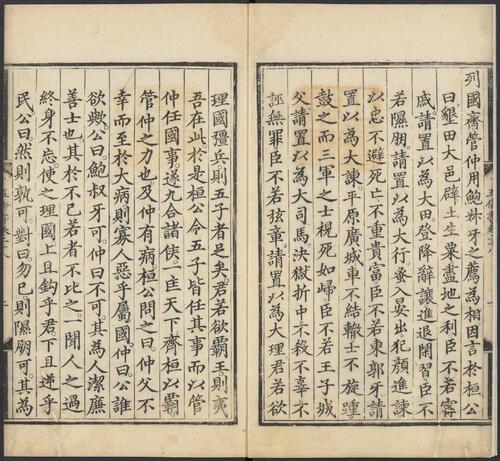 列國齊管仲用鮑叔牙之薦為相因言於桓公
曰墾田大邑辟土生粟盡地之利臣不若甯
戚請置以為大田登降辭讓進退閑習臣不
若隰朋請置以為大行蚤入晏出犯顏進諫
以忠不避死亡不重貴富臣不若東郭牙請
置以為大諫平原廣城車不結轍士不旋踵
鼓之而三軍之士視死如歸臣不若王子城
父請置以為大司馬決獄折中不殺不辜不
誣無罪臣不若弦章請置以為大理君若欲
理國彊兵則五子者足矣君若欲霸王則夷
吾在此於是桓公令五子皆任其事而以管
仲任國事遂九合諸侯一匡天下齊桓以霸
管仲之力也及仲有病桓公問之曰仲父不
幸而至於大病則寡人惡乎屬國仲曰公誰
欲歟公曰鮑叔牙可仲曰不可其為人潔廉
善士也其於不已若者不比之一聞人之過
終身不忘使之理國上且鈎乎君下且逆乎
民公曰然則孰可對曰勿已則隰朋可其為